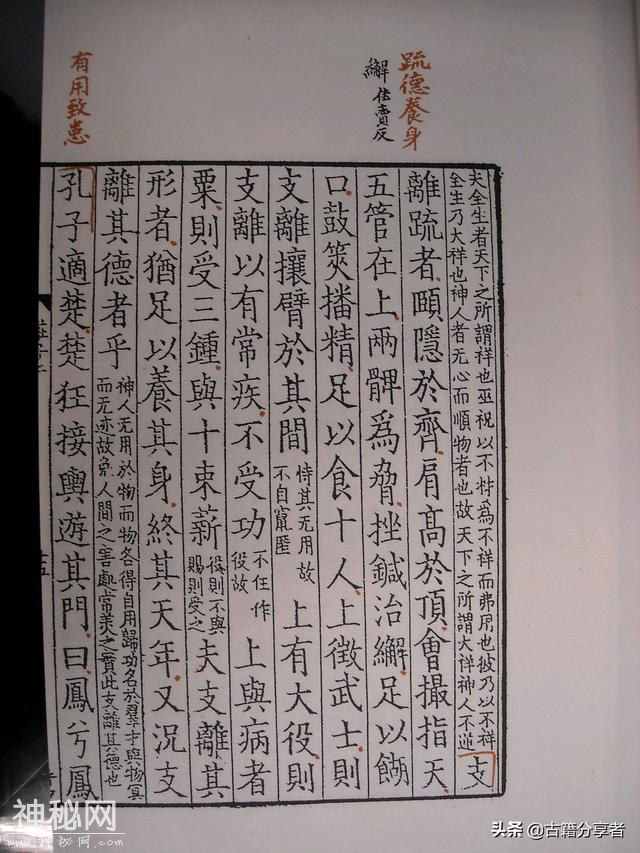 疏德養身
繲 佳賣反
有用致患
夫全生者天下之所謂祥也巫祝以不材為不祥而弗用也彼乃以不祥
全生乃大祥也神人者无心而順物者也故天下之所謂大祥神人不逆
支
離疏者頤隱於齊肩高於頂會撮指天
五管在上兩髀為脅挫鍼治繲足以餬
口鼓筴播精足以食十人上徵武士則
支離攘臂於其間
恃其无用故
不自竄匿
上有大役則
支離以有常疾不受功
不任作
役故
上與病者
粟則受三鍾與十束薪
役則不與
賜則受之
夫支離其
形者猶足以養其身終其天年又況支
離其德者乎
神人无用於物而物各得自用歸功名於羣才與物冥
而无迹故免人間之害處常美之實此支離其德也
孔子適楚楚狂接輿遊其門曰鳳兮鳳
神秘网
www.神秘网.com
头条 @古籍分享者